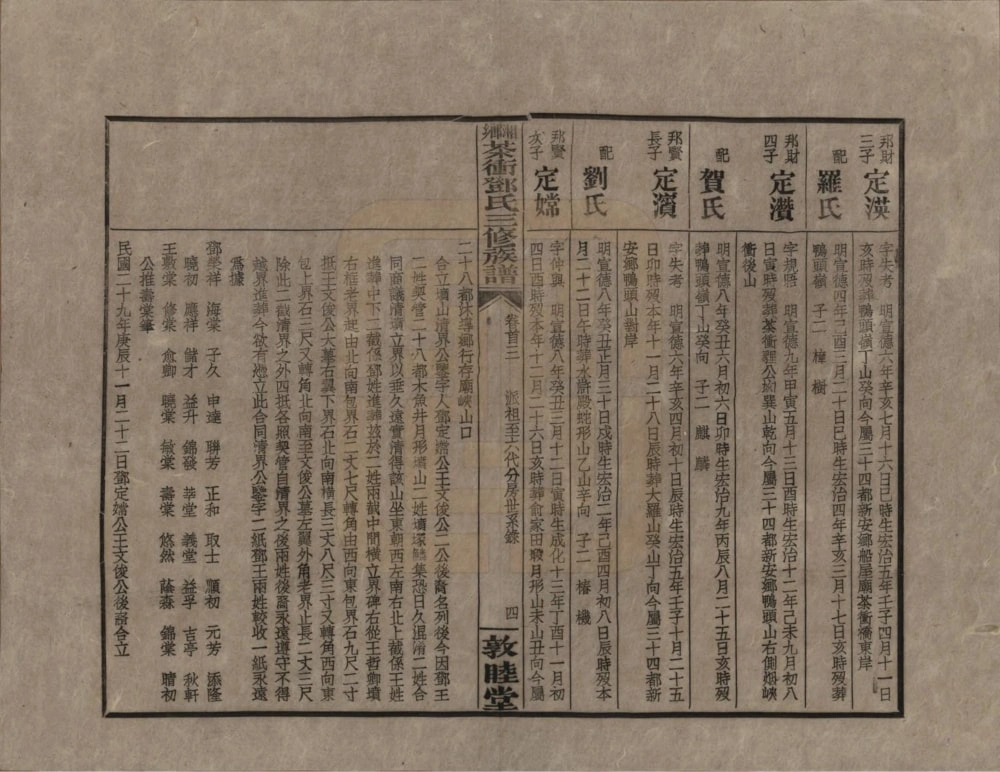 邦財三子 定渶 字失考 明宣德六年辛亥七月十六日巳時生宏治五年壬子四月十一日
亥時歿葬鴨頭嶺丁山癸向今屬三十四都新安鄉船屋廟茶衝橋東岸
配 羅氏 明宣德四年己酉三月二十日巳時生宏治四年辛亥三月十七日亥時歿葬
鴨頭嶺 子二 樟 樹
邦財四子 定灒 字規醅 明宣德九年甲寅五月十三日酉時生宏治十二年己未九月初八
日寅時歿葬茶衝裡公坳巽山乾向今屬三十四都新安鄉鴨頭山右側煨峽
衝後山
配 賀氏 明宣德八年癸丑六月初六日卯時生宏治九年丙辰八月二十五日亥時歿
葬鴨頭嶺丁山癸向 子二 麒 麟
邦賢長子 定濱 字失考 明宣德六年辛亥四月初十日辰時生宏治五年壬子十月二十五
日卯時歿本年十一月二十八日辰時葬大羅山癸山丁向今屬三十四都新
安鄉鴨頭山對岸
配 劉氏 明宣德八年癸丑正月三十日戌時生宏治二年己酉四月初八日辰時歿本
月二十二日午時葬水滸殿蛇形山乙山辛向 子二 椿 機
邦賢次子 定嫦 字仲興 明宣德八年癸丑三月十二日寅時生成化十三年丁酉十一月初
四日酉時歿本年十二月二十六日亥時葬俞家田塅月形山未山丑向今屬
湘鄉茶衝鄧氏三修族譜 卷首三 派祖至十六代分房世系錄 四 敦睦堂
二十八都休導鄉行存廟峽山口
合立墳山清界公鑒字人鄧定嫦公王文俊公二公後裔名列後今因鄧王
二姓契管二十八都木魚井月形墳山二姓墳塚鱗集恐日久混淆二姓合
同商議清墳立界以垂久遠實清得該山坐東朝西左南右北上截係王姓
進葬中下二截係鄧姓進葬茲於二姓兩截中間橫立界碑右從王哲卿墳
右框老界起由北向南包界石二丈七尺轉角由西向東包界石九尺二寸
抵王文俊公大墓右翼下界石北向南橫長三丈八尺三寸又轉角西向東
包上界石三尺又轉角北向南至文俊公墓左翼外角老界止長二丈三尺
除此二截清界之外四抵各照契管自清界之後兩姓後裔永遠遵守不得
越界進葬今欲有憑立此合同清界公鑒字二紙鄧王兩姓較收一紙永遠
為據
鄧榮祥 海棠 子久 申達 聯芳 正和 取士 顯初 元芳 添隆
曉初 應祥 儲才 益升 錦發 華堂 義堂 益孚 吉亭 秋軒
王敷棠 修棠 俞卿 曉棠 敏棠 壽棠 悠然 蔭森 錦棠 晴初
公推壽棠筆
民國二十九年庚辰十一月二十二日鄧定嫦公王文俊公後裔合立